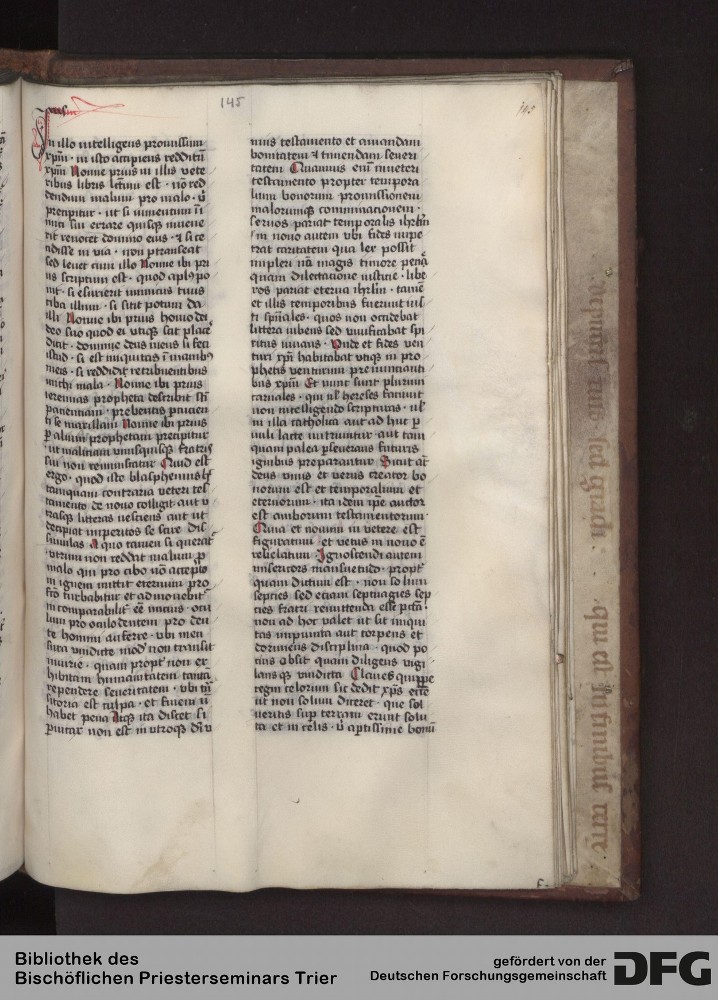 145
In illo intelligens promissum
xpm · in isto accipiens redditu
xpm Nonne prius in illis vete
ribus libris scriptum est · no red
dendum malum pro malo · u
precipitur · ut si iumentum
errare quisque invene
rit revocet domino eius · si ce
cidisse in via · non pertranseat
sed levet cum illo Nonne ibi pri
us scriptum est · quod aplus po
nit · si esurierit inimicus tuus
ciba illum · si sitit potum da
illi Nonne ibi prius homo dei
deo suo quod ei utique sat place
dicit · domine deus meus si feci
istud · si est iniquitas i manibus
meis · si reddidi retribuentibus
michi mala · Nonne ibi prius
ieremias propheta describit
patientiam · prebentis percucien
ti se maxillam Nonne ibi prius
per alium prophetam precipitur
ut malitiam unusquisque fratris
sui non reminiscatur Quid est
ergo · quod iste blasphemus
tamquam contraria veteri tes
tamento de novo colligit aut u
trasque litteras nesciens aut ut
decipiat imperitos se scire dis
simulas A quo tamen si querat
utrum non reddat malum pro
malo qui pro cibo non accepto
in ignem mittit eternum pro
fecto turbabitur et admonebit
incomparabiliter esse minus · ocu
lum pro oculo dentem pro den
te homini auferre · ubi men
sura vindicte modum non transit
iniurie · quam propter non ex
hibitam humanitatem tantam
rependere severitatem · ubi tran
sitoria est culpa · et finem non
habet pena Itaque ita discret si
non est in utroque divi
nius testamento et amandam
bonitatem et timendam severi
tatem Quamvis enim in veteri
testamento propter tempora
lium bonorum promissionem
malorumque comminationem ·
servos pariat temporalis ihrlm
in novo autem ubi fides impe
trat caritatem qua lex possit
impleri non magis timore pena
quam dilectione iusticie · libe
ros pariat eterna ihrlm · tamen
et illis temporibus fuerunt ius
ti spirituales · quos non occidebat
littera iubens sed vivificabat spi
ritus iuvans · Unde et fides ven
turi xpi habitabat utique in pro
phetis venturum prenunciant
bus xpm Et nunc sunt plurimi
carnales · qui vel hereses faciunt
non intelligendo scripturas · vel
in illa catholica aut adhuc
vuli lacte nutriuntur aut tam
quam palea perseverans futuris
ignibus preparantur Sicut autem
deus unus et verus creator bo
norum est et temporalium et
eternorum · ita idem ipse auctor
est amborum testamentorum
Quia et novum in vetere est
figuratum et vetus in novo est
revelatum Ignoscendi autem
misericors mansuetudo · propter
quam dictum est · non solum
septies sed etiam septuagies sep
cies fratri remittenda esse peccata ·
non ad hoc valet ut sit iniqui
tas impunita aut torpens et
dormiens disciplina · quod po
cius obsit quam diligens vigi
lansque vindicta Claves quippe
regni celorum sic dedit xps ecclesie
ut non solum diceret · que sol
veritis super terram erunt solu
ta et in celis · ubi apertissime bonum
Bibliothek des
Bischöflichen Priesterseminars Trier
gefördert von der
Deutschen Forschungsgemeinschaft
DFG